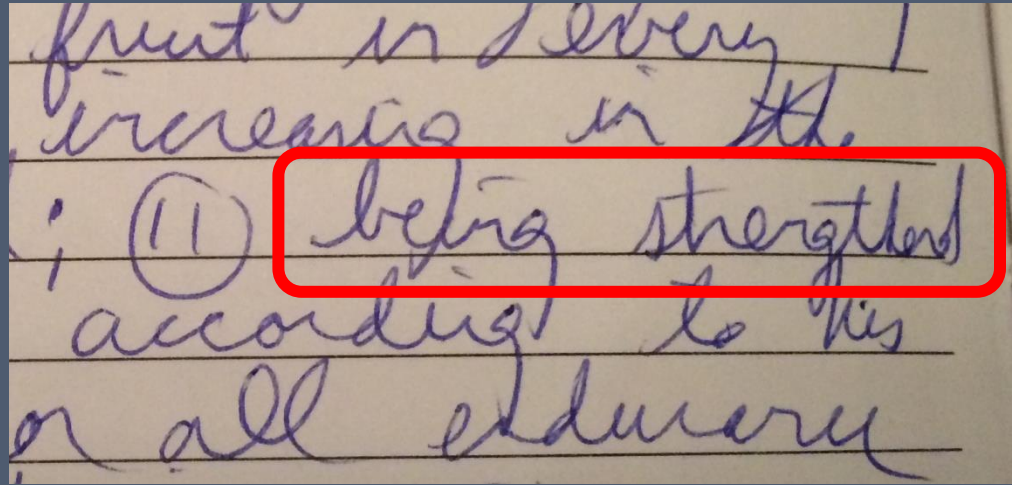 fruit in every
increasing in the
; 11 being strengthend
according to his
or all endurance